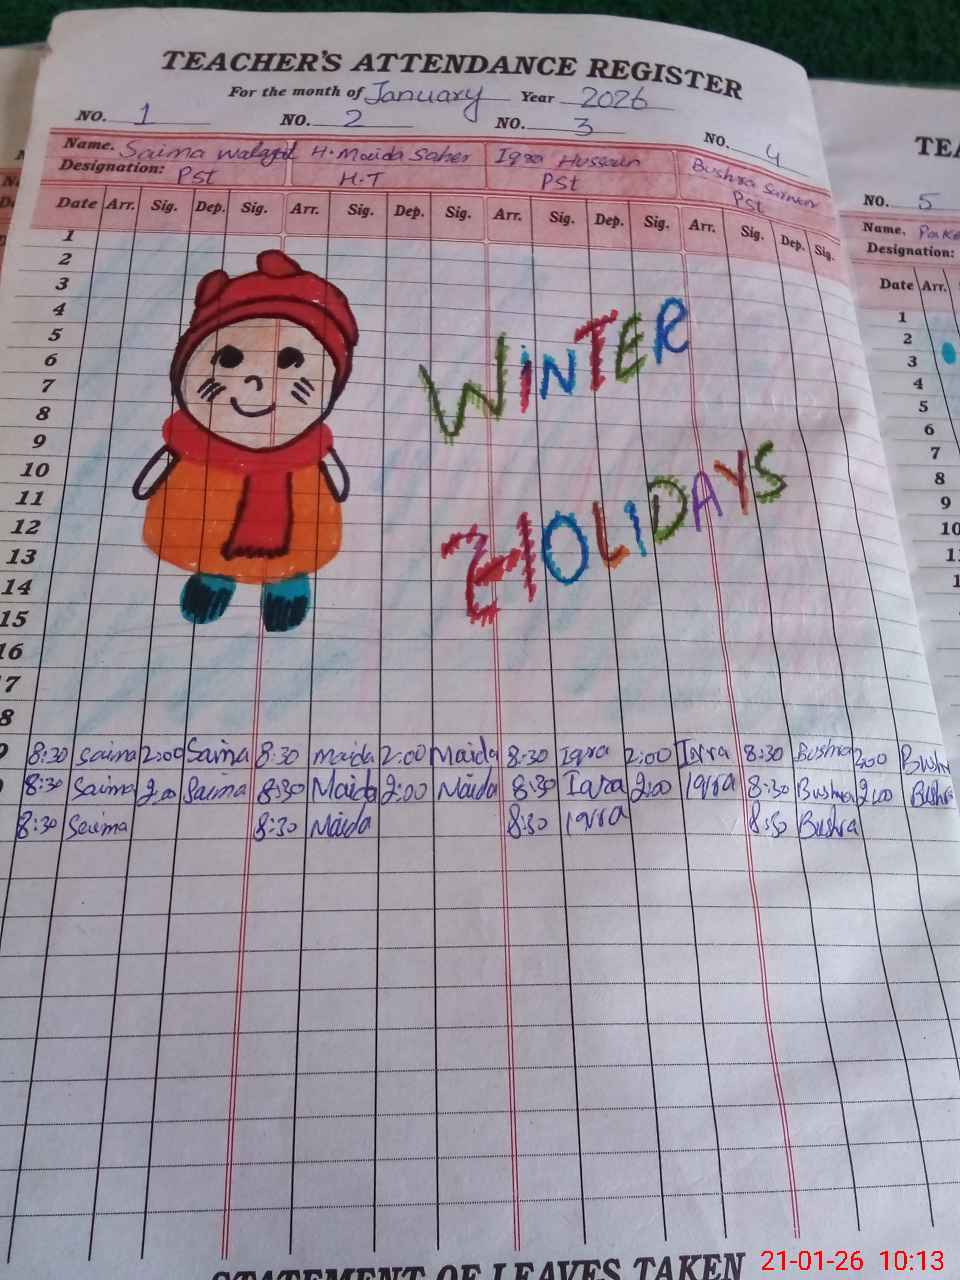 TEACHER'S ATTENDANCE REGISTER
For the month of January Year 2026
NO. 1 NO. 2 NO. 3 NO. 4
Name. Saima H. Maida Saher Iqra Hussain Bushra
Designation: Pst H.T Pst Pst
Date Arr. Sig. Dep. Sig. Arr. Sig. Dep. Sig. Arr. Sig. Dep. Sig. Arr. Sig. Dep. Sig.
1
2
3
4
5
6
7
8
9
10
11
12
13
14
15
16
7
8
WINTER
HOLIDAYS
9 8:30 Saima 2:00 Saima 8:30 Maida 2:00 Maida 8:30 Iqra 2:00 Iqra 8:30 Bushra 2:00 Bushr
8:30 Saima 2:00 Saima 8:30 Maida 2:00 Maida 8:30 Iqra 2:00 Iqra 8:30 Bushra 2:00 Bushra
8:30 Saima 8:30 Maida 8:30 Iqra 8:30 Bushra
STATEMENT OF LEAVES TAKEN
TEA
NO. 5
Name.
Designation:
Date Arr.
1
2
3
4
5
6
7
8
9
10
11
12
13
14
1
21-01-26 10:13